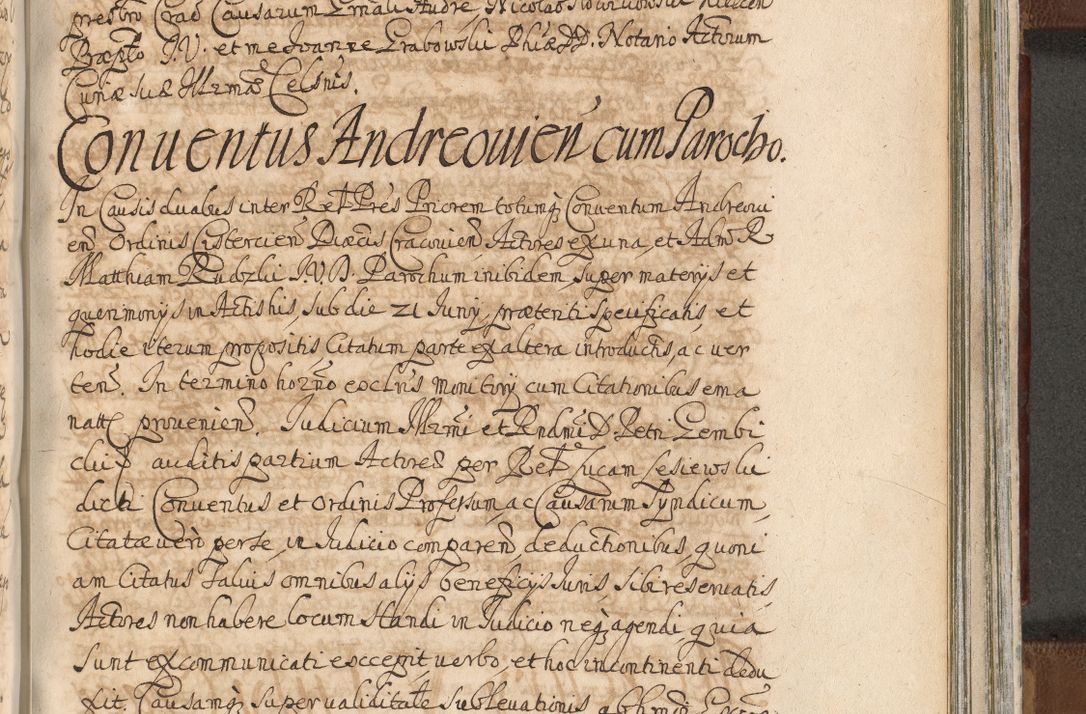 Præpto J.V. et me Joanne Grabowski Phiæ D. Notario Actorum
Curiæ suæ Illrmæ Celsnis.
Conuentus Andreouien cum Parocho.
In Causis duabus inter Rel Pres Priorem totumq Conuentum Andreoui
en Ordinis Cistercien Diæcis Cracouien Actores ex una, et Adm R
Matthiam Rudzki J.V.D. Parochum inibidem, super materys et
querimonys in Actis his, sub die 21 Juny, prætenti specificatis, et
hodie iterum propositis Citatum parte ex altera introductis, ac ver
ten. In termino horno ex clnis monitory cum Citationibus ema
natt prouenien. Judicium Illrmi et Rndmi D Petri Gembi
ckij auditis partium Actores per Rel Lucam Lesiewski
dicti Conuentus et Ordinis Professum, ac Causarum Syndicum,
Citatæ verò per se, in Judicio comparen, deductionibus, quoni
am Citatus Saluis omnibus alys beneficys Juris, sibi reseruatis,
Actores non habere locum standi in Judicio neq agendi quia
sunt excommunicati excepit verbo, et hoc incontinenti dedu
xit. Causamq super validitate subleuationis